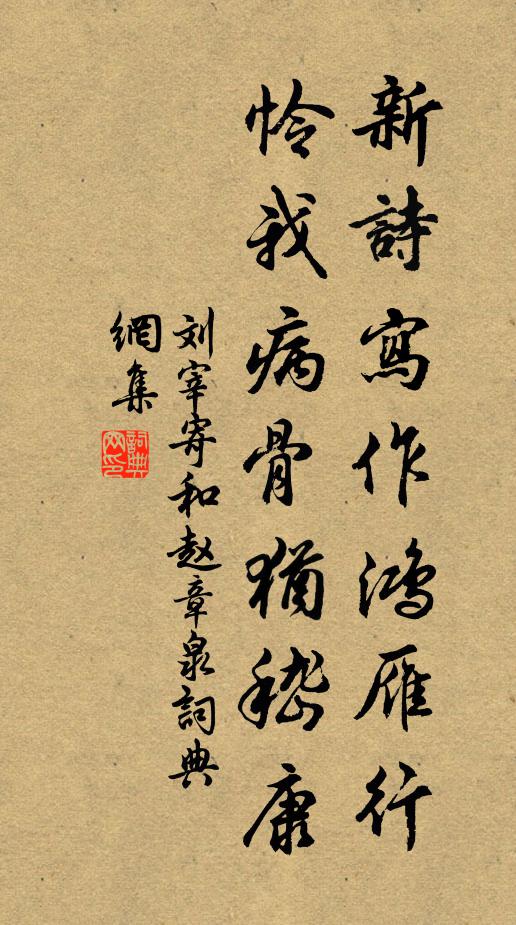 新詩寫作鴻雁行
怜我病骨猶嵇康
刘宰寄和赵章泉詞典
網集
詞典網印